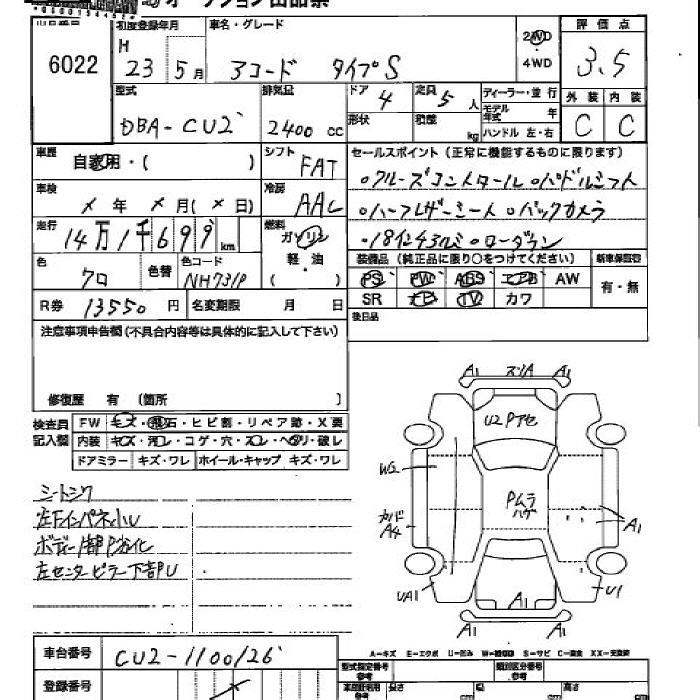 オークション出品票
出品番号 初度登録年月 車名・グレード 2WD 評価点
6022 H 23 5月 アコード タイプS 4WD 3.5
型式 排気量 ドア 4 定員 5人 ディーラー・並行 外装 内装
DBA-CU2 2400 CC 形状 積載 kg モデル年式 年 ハンドル 左・右 C C
車歴 自家用・( ) シフト FAT セールスポイント(正常に機能するものに限ります)
車検 × 年 × 月(× 日) 冷房 AAC 。クルーズコントロール 。パドルシフト
。ハーフレザーシート 。バックカメラ
走行 14万1千699km 燃料 ガソリン 軽・油 ( )
。ローダウン
色 クロ 色替 色コード NH731P 装備品(純正品に限り○をつけてください) 新車保証書
PS PW ABS エアB AW 有・無
R券 13550円 名変期限 月 日 SR ナビ TV カワ
注意事項申告欄(不具合内容等は具体的に記入して下さい) 後日品
修復歴 有 (箇所 )
検査員記入欄 FW キズ・飛石・ヒビ割・リペア跡・X要
内装 キズ・汚レ・コゲ・穴・スレ・ヘタリ・破レ
ドアミラー キズ・ワレ ホイール・キャップ キズ・ワレ
シートシワ
左Fインパネ小U
ボディ一部P劣化
左センターピラー下部U
A1 スリA A1
U2 Pアセ
W2
Pムラ ハゲ
カド A4
A1
UA1
A1
U1
A1 A1
A-キズ E-エクボ U-凹み W-補修跡 S-サビ C-腐食 XX-交換済
車台番号 CU2-1100126
登録番号
型式指定番号 参考 類別区分番号 参考
長さ cm 幅 cm 高さ cm